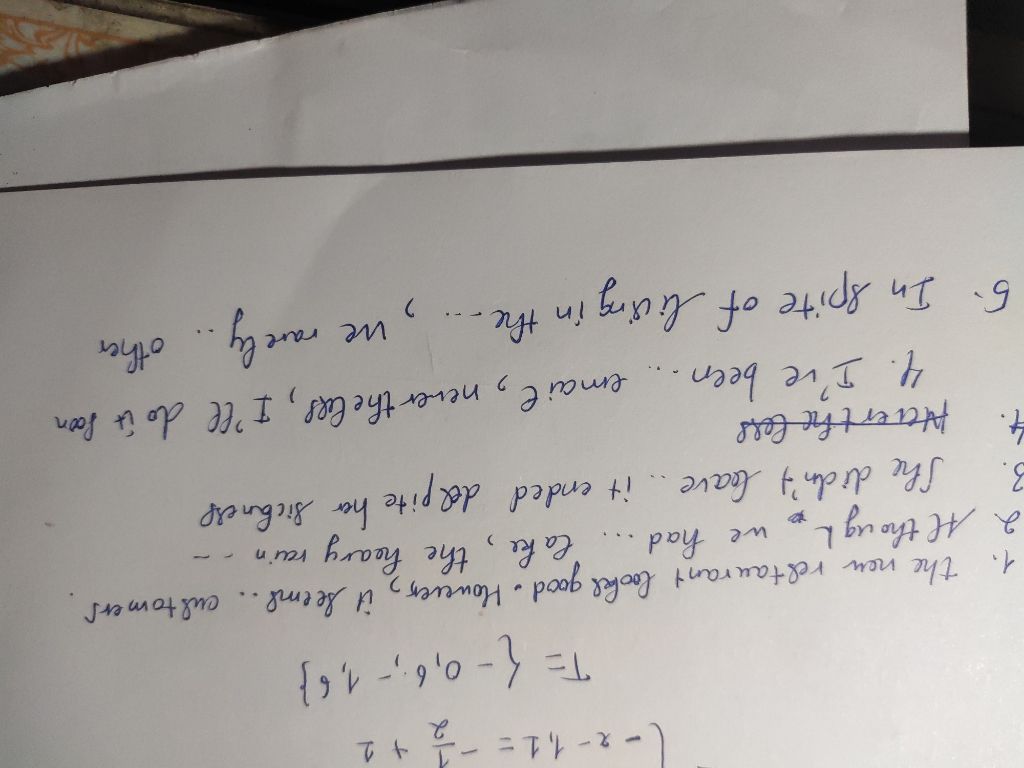 (-x-1,1 = -1/2 + 2
T = {-0,6; -1,6}
1. The new restaurant looks good. However, it seems .. customers.
2 Although we had ... lake, the heavy rain --
3. She didn't leave .. it ended despite her sickness
4. Nevertheless
4. I've been ... email, nevertheless, I'll do it soon
5. In spite of living in the ..., we rarely .. other